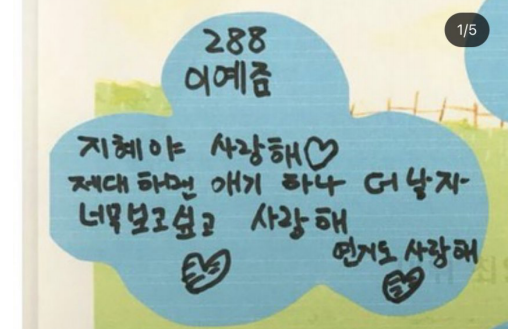 1/5
288
이예준
지혜야 사랑해♡
제대 하면 애기 하나 더 낳자
너무 보고싶고 사랑해
연지도 사랑해